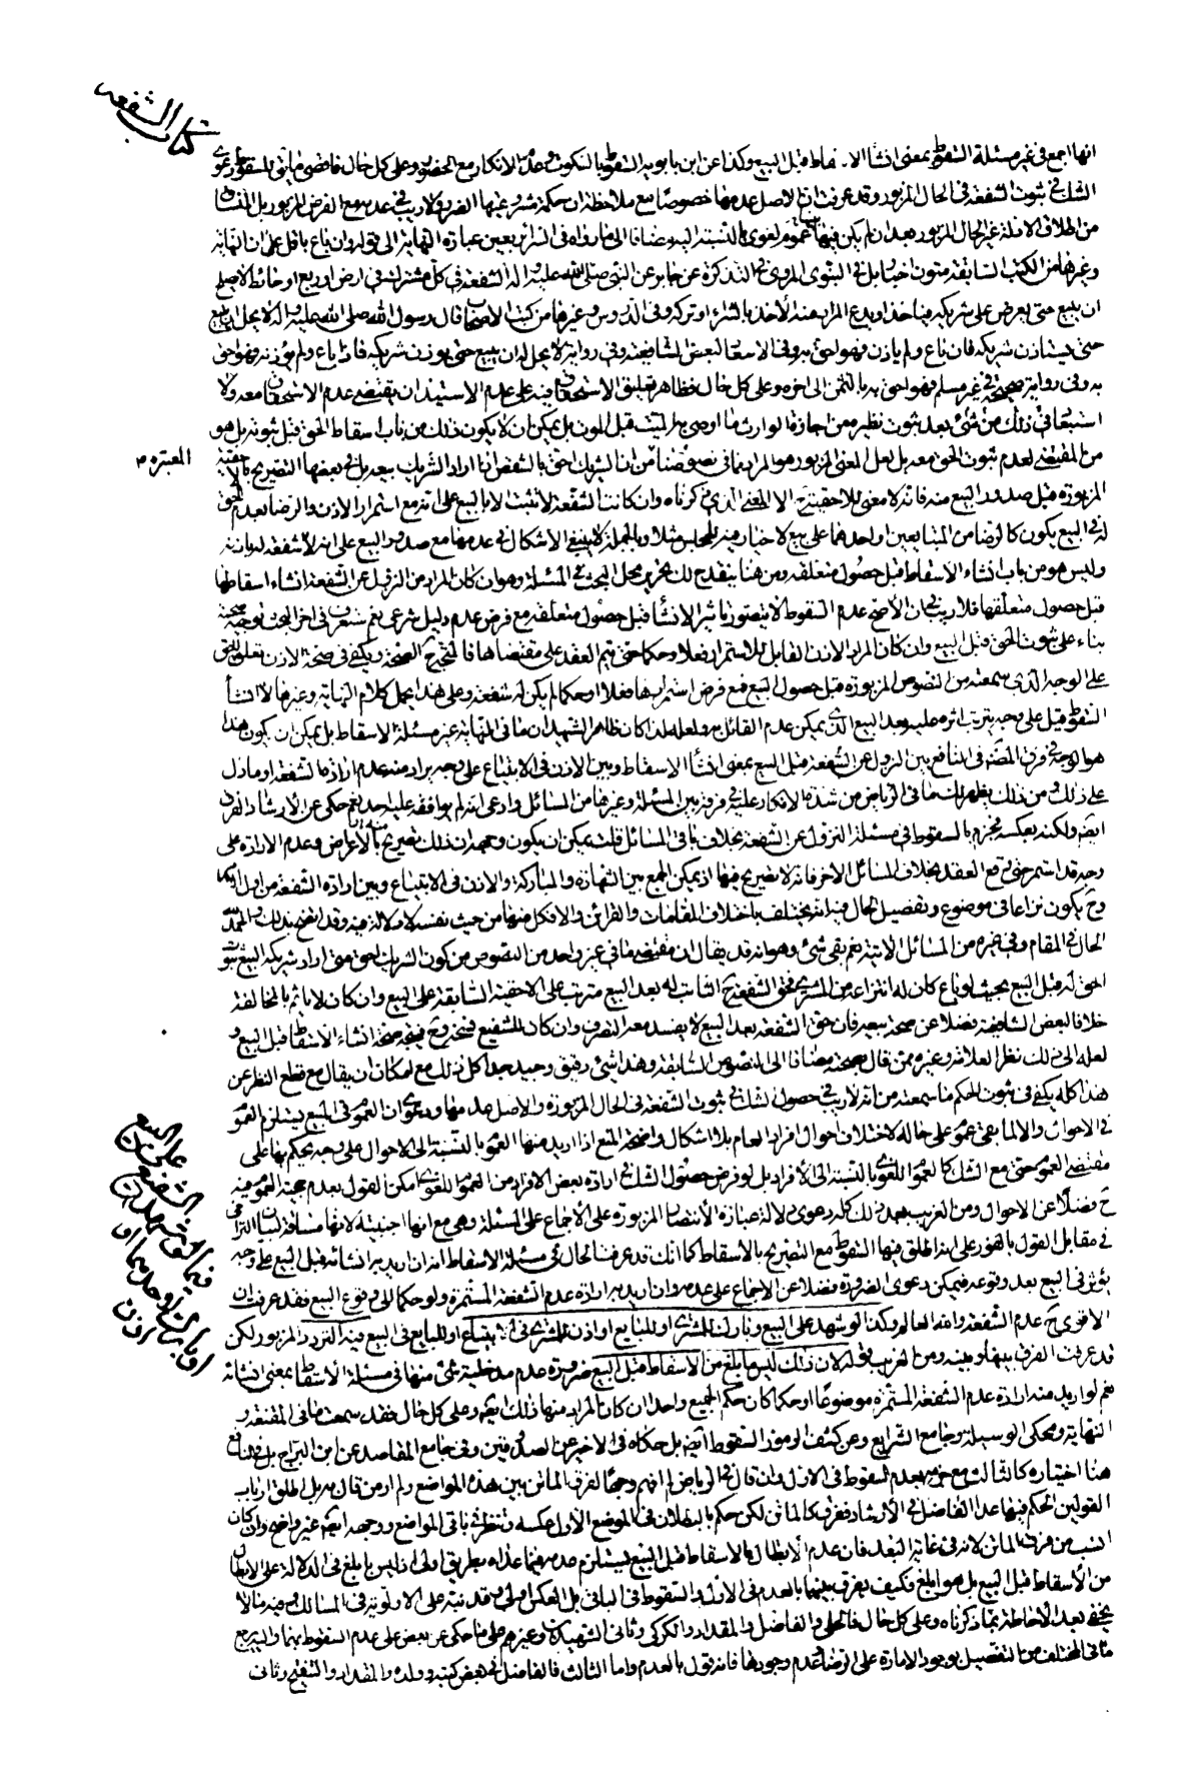 كتاب الشفعة
انها اجمع في غير مسئلة السقوط بمعنى انشاء الاسقاط قبل البيع وكذا عن ابن بابويه السقوط بالسكوت وعدم الانكار مع الحضور وعلى كل حال
الشك في ثبوت الشفعة في الحال المزبور وقد عرفت ان الاصل عدمها خصوصا مع ملاحظة ان حكمة مشروعيتها الضرر ولا ريب في عدمه مع الفرض المزبور بل
من اطلاق الادلة غير الحال المزبور بعد ان لم يكن فيها عموم لغوي بالنسبة اليه مضافا الى ما رواه في السرائر بعين عبارة النهاية الى قوله وان باع باقل على ان النهاية
وغيرها من الكتب السابقة متون اخبار بل في النبوي المروي في التذكرة عن جابر عن النبي صلى الله عليه واله الشفعة في كل مشترك في ارض او ربع او حائط لا يصلح
ان يبيع حتى يعرض على شريكه فياخذ او يدع المراد منه الاخذ بالشراء او تركه وفي الدروس وغيرها من كتب الاصحاب قال رسول الله صلى الله عليه واله لا يحل ان يبيع
حتى يستاذن شريكه فان باع ولم ياذن فهو احق به وفي الاسعاد لبعض الشافعية وفي رواية لا يحل له ان يبيع حتى يوذن شريكه فاذا باع ولم يؤذنه فهو احق
به وفي رواية صحيحة في غير مسلم فهو احق به بالثمن الى اخره وعلى كل حال فظاهر تعليق الاستحقاق فيه على عدم الاستيذان يقتضي عدم الاستحقاق معه ولا
استبعاد في ذلك من شئ بعد ثبوت نظيره من اجازة الوارث ما اوصى به الميت قبل الموت بل يمكن ان لا يكون ذلك من باب اسقاط الحق قبل ثبوته بل هو
من المقتضي لعدم ثبوت الحق معه بل لعل المعنى المزبور هو المراد مما في نصوصنا من ان الشريك احق بالشفعة اذا اراد الشريك بيعه بل في بعضها التصريح بالاحقية
المعتبرة م
المزبورة قبل صدور البيع منه فانه لا معنى للاحقية ح الا المعنى الذي ذكرناه وان كانت الشفعة لا تثبت الا بالبيع على انه مع استمرار الاذن والرضا بعدم الحق
له في البيع يكون كالرضا من المتبايعين او احدهما على بيع لا خيار فيه للمجلس مثلا وبالجملة لا ينبغي الاشكال في عدمها مع صدور البيع على انه لا شفعة له باذنه
وليس هو من باب انشاء الاسقاط قبل حصول متعلقه ومن هنا ينقدح لك تحرير محل البحث في المسئلة وهو ان كان المراد من النزول عن الشفعة انشاء اسقاطها
قبل حصول متعلقها فلا ريب في ان الاصح عدم السقوط لا يتصور تاثير الانشاء قبل حصول متعلقه مع فرض عدم دليل شرعي نعم ستعرف في اخر البحث توجيه صحته
بناء على ثبوت الحق قبل البيع وان كان المراد الاذن القابل للاستمرار فعلا وحكما حتى يتم العقد على مقتضاها فالمتجه الصحة ويكفي في صحة الاذن تعلق الحق
على الوجه الذي سمعته من النصوص المزبورة قبل حصول البيع فمع فرض استمرارها فعلا او حكما لم يكن له شفعة وعلى هذا يحمل كلام النهاية وغيرها لا انشاء
السقوط قبل على وجه يترتب اثره عليه بعد البيع الذي يمكن عدم القائل به ولعله لذا كان ظاهر الشهيد ان ما في النهاية غير مسئلة الاسقاط بل يمكن ان يكون هذا
هو الوجه في فرق المصنف في النافع بين النزول عن الشفعة قبل البيع بمعنى انشاء الاسقاط وبين الاذن في الابتياع على وجه يراد منه عدم ارادة الشفعة او ما دل
على ذلك ومن ذلك يظهر لك ما في الرياض من شدة الانكار عليه في فرقه بين المسئلة وغيرها من المسائل وادعى انه لم يوافقه عليه احد نعم حكى عن الارشاد الفرق
ايضا ولكنه بعكسه فجزم بالسقوط في مسئلة النزول عن الشفعة بخلاف باقي المسائل قلت يمكن ان يكون وجهه ان ذلك تصريح منه بالاعراض وعدم الارادة على
وجه قد استمر حتى وقع العقد بخلاف المسائل الاخر فانه لا تصريح فيها اذ يمكن الجمع بين الشهادة والمباركة والاذن في الابتياع وبين ارادة الشفعة من اول
وح يكون نزاعا في موضوع وتفصيل الحال فيه انه يختلف باختلاف المقامات والقرائن والا فكل منها من حيث نفسه لا دلالة فيه وقد اتضح بذلك
الحال في المقام وفي غيره من المسائل الاتية نعم بقي شئ وهو انه قد يقال ان مقتضى ما في غير واحد من النصوص من كون الشريك احق متى اراد شريكه البيع ثبوت
احق له قبل البيع بحيث لو باع كان له انتزاعه من المشتري فحق الشفعة ح الثابت له بعد البيع مترتب على الاحقية السابقة على البيع وان كان لا ياثم بالمخالفة
خلافا لبعض الشافعية فضلا عن صحة بيعه فان حق الشفعة بعد البيع لا يفسد معه التصرف وان كان للشفيع فسخه وح فيتجه صحة انشاء الاسقاط قبل البيع و
لعله الى ذلك نظر العلامة وغيره ممن قال بصحته مضافا الى النصوص السابقة وهذا شئ دقيق وجيد جدا كل ذلك مع امكان ان يقال مع قطع النظر عن
هذا كله يكفي في ثبوت الحكم ما سمعته من انه لا ريب في حصول الشك في ثبوت الشفعة في الحال المزبورة والاصل عدمها ودعوى ان العموم في البيع يستلزم العموم
في الاحوال والا لما بقي عمومه على حاله لاختلاف احوال افراد العام بلا اشكال واضحة المنع اذا اريد منها العموم بالنسبة الى الاحوال على وجه يحكم بها على
مقتضى العموم حتى مع الشك كالعموم اللغوي بالنسبة الى الافراد بل لو فرض حصول الشك في ارادة بعض الافراد من العموم اللغوي امكن القول بعدم حجية العموم فيه
ح فضلا عن الاحوال ومن الغريب بعد ذلك كله دعوى دلالة عبارة الانتصار المزبورة على الاجماع على المسئلة وهي مع انها اجنبية لانها مساقة لبيان التراخي
في مقابل القول بالفور على انه اطلق فيها السقوط مع التصريح بالاسقاط كما انك قد عرفت الحال في مسئلة الاسقاط انه ان اريد به انشائه قبل البيع على وجه
يؤثر في البيع بعد وقوعه فيمكن دعوى الضرورة فضلا عن الاجماع على عدمه وان اريد به ارادة عدم الشفعة المستمرة ولو حكما الى وقوع البيع فقد عرفت ان
الاقوى ح عدم الشفعة والله العالم وكذا لو شهد على البيع او بارك للمشتري او للبايع او اذن للمشتري في الابتياع او للبايع في البيع فيه التردد المزبور لكن
قد عرفت الفرق بينها وبينه ومن الغريب قوله لان ذلك ليس بابلغ من الاسقاط قبل البيع ضرورة عدم مدخلية شئ منها في مسئلة الاسقاط بمعنى انشائه
نعم لو اريد منه ارادة عدم الشفعة المستمرة موضوعا او حكما كان حكم الجميع واحدا ان كان المراد منها ذلك ايضا وعلى كل حال فقد سمعت ما في المقنعة و
النهاية ومحكي الوسيلة وجامع الشرايع وعن كشف الرموز السقوط ايضا بل حكاه في الاخير عن الصدوقين وفي جامع المقاصد عن ابن البراج بل في النافع
هنا اختياره كالثالث مع جزمه بعدم السقوط في الاول وان قال في الرياض لم افهم وجها لفرق الماتن بين هذه المواضع ولم ار من قال به بل اطلق ارباب
القولين الحكم فيها عدا الفاضل في الارشاد ففرق كالماتن لكن حكم بالبطلان في الموضع الاول عكسه وتنظر في باقي المواضع ووجهه ايضا غير واضح وان كان
انسب من فرق الماتن لانه في غاية البعد فان عدم الابطال بالاسقاط قبل البيع يستلزم عدمه فيما عداه بطريق اولى اذ ليس بابلغ في الدلالة على الابطال
من الاسقاط قبل البيع بل هو ابلغ فكيف يفرق بينهما بالعدم في الاول والسقوط في الباقي بل العكس اولى وقد نبه على الاولوية في المسالك وفيه ما لا
يخفى بعد الاحاطة بما ذكرناه وعلى كل حال فالحلي والفاضل والمقداد والكركي وثاني الشهيدين وغيرهم على ما حكى عن بعض على عدم السقوط بهما واليه يرجع
ما في المختلف من التفصيل بوجود الامارة على الرضا وعدم وجودها فانه قول بالعدم واما الثالث فالفاضل في بعض كتبه وولده والمقداد والتنقيح وثاني
على البيع
الشفيعين
فيما لو شهد
او بارك لاحدهما او
اذن